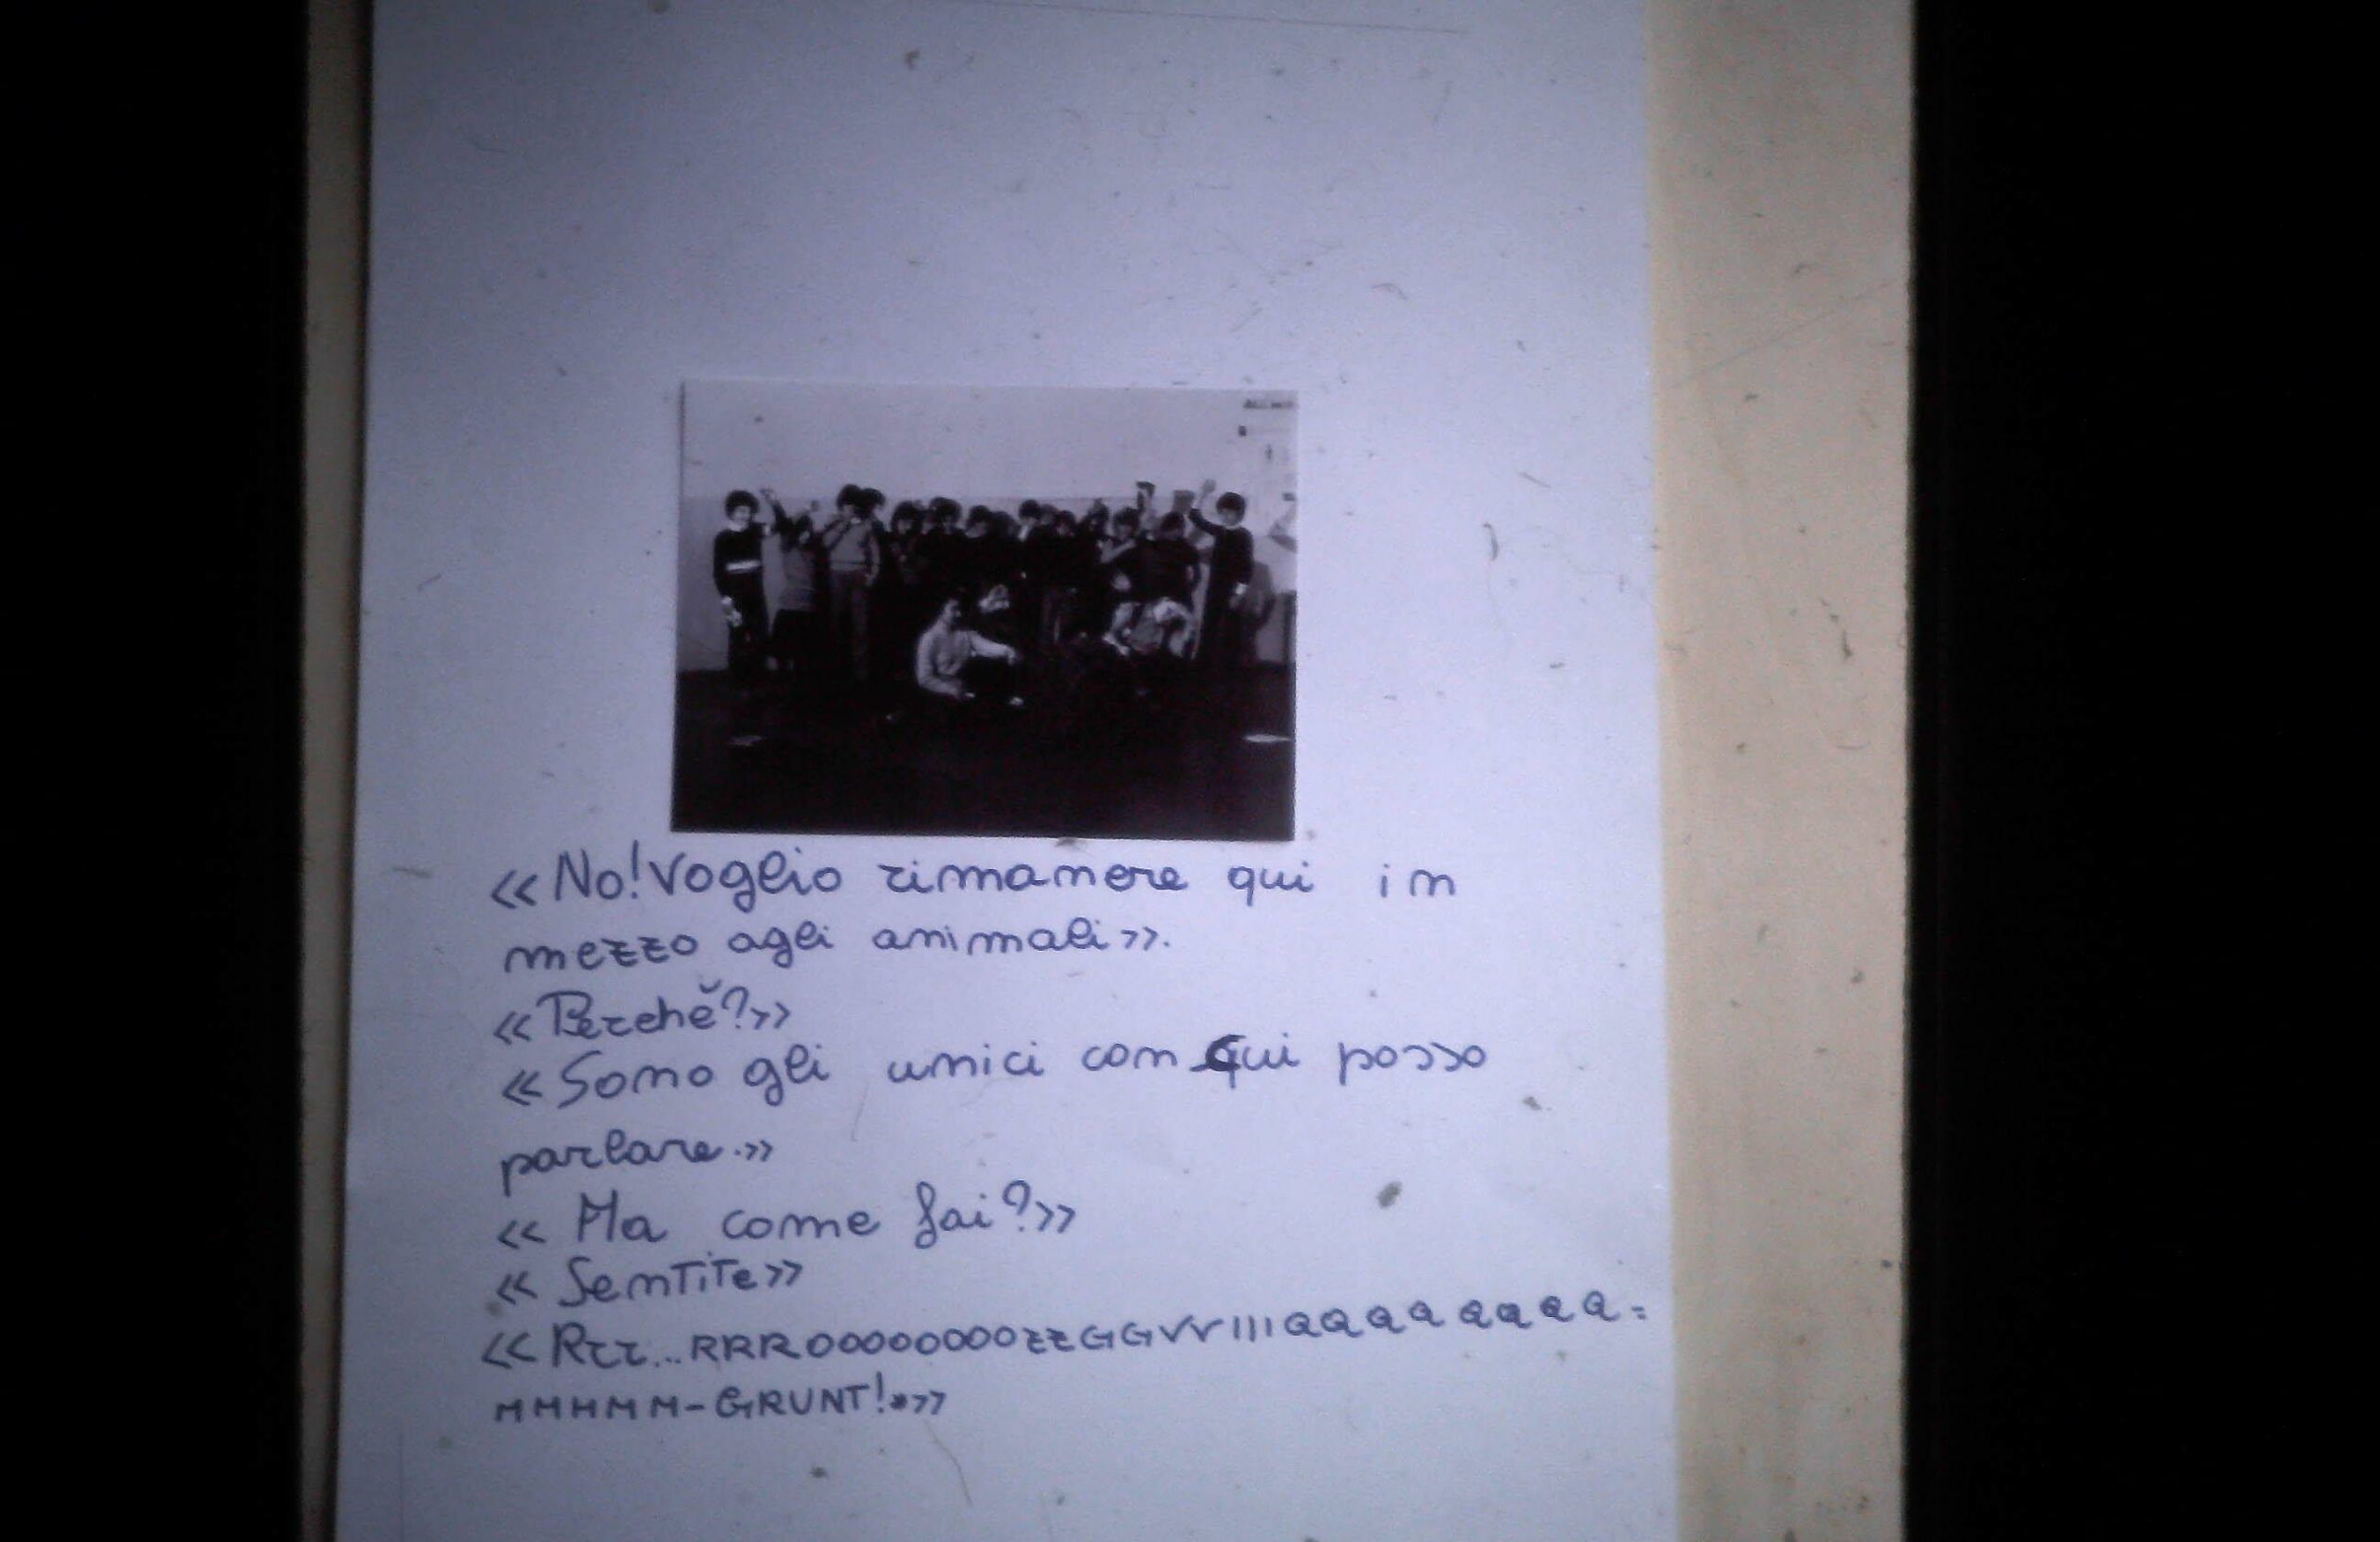 «No! Voglio rimanere qui in
mezzo agli animali».
«Perchě?»
«Sono gli unici con cui posso
parlare.»
« Ma come fai?»
« Sentite»
«Rrr... RRROOOOOOOOZZGGVVIIIQQQQQQQQ=
MMMMM-GRUNT!»»